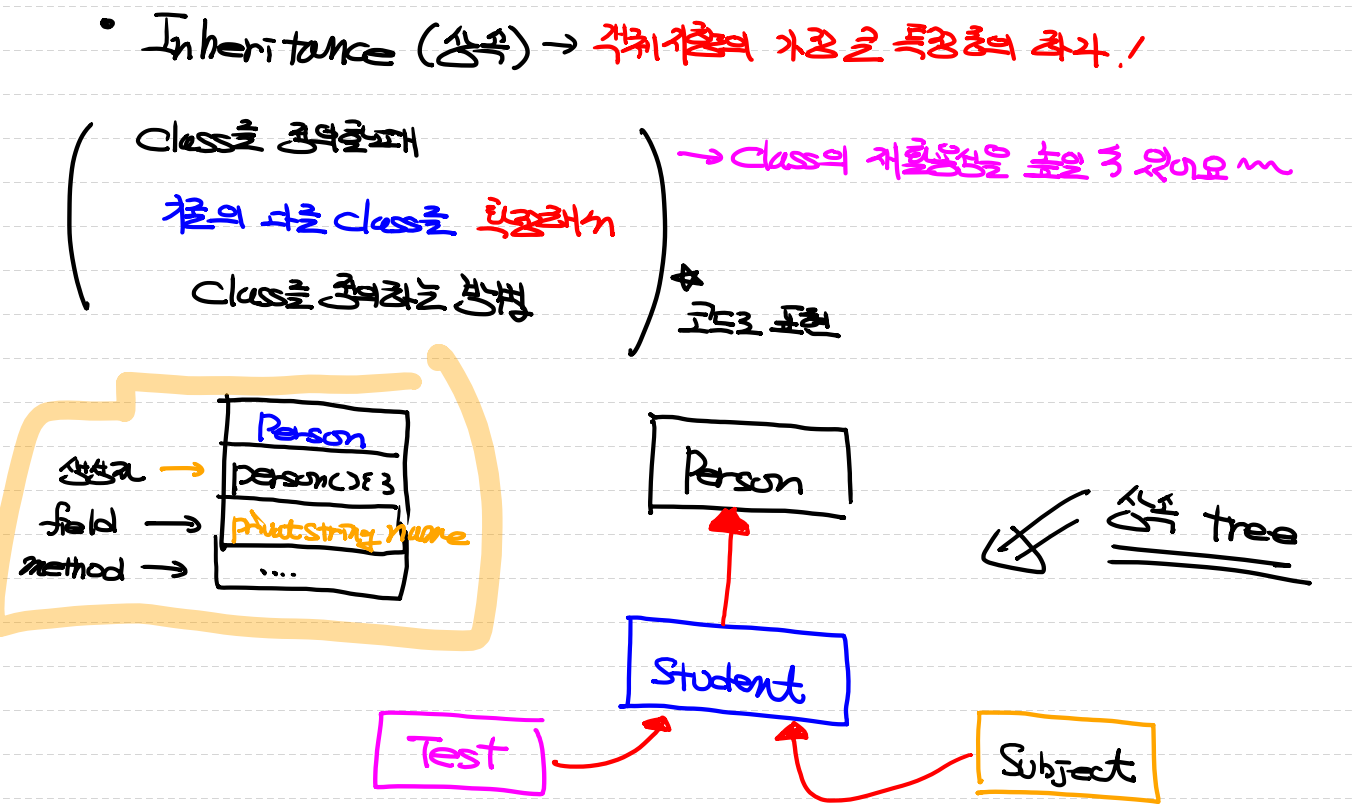 • Inheritance (상속) → 객체지향의 가장 큰 특징중의 하나!
Class를 정의할때
기존의 다른 Class를 확장해서
Class를 정의하는 방법
→ Class의 재활용성을 높일 수 있어요~
☆
코드로 표현
Person
생성자 → person(){}
field → privatstring name
method → ....
Person
상속 tree
Student
Test
Subject